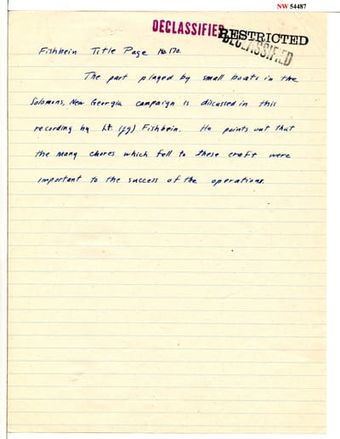 NW 54487
DECLASSIFIED
RESTRICTED
DECLASSIFIED
Fishbein Title Page No.170.
The part played by small boats in the
Solomons, New Georgia campaign is discussed in this
recording by Lt. (jg) Fishbein. He points out that
the many chores which fell to these craft were
important to the success of the operations.